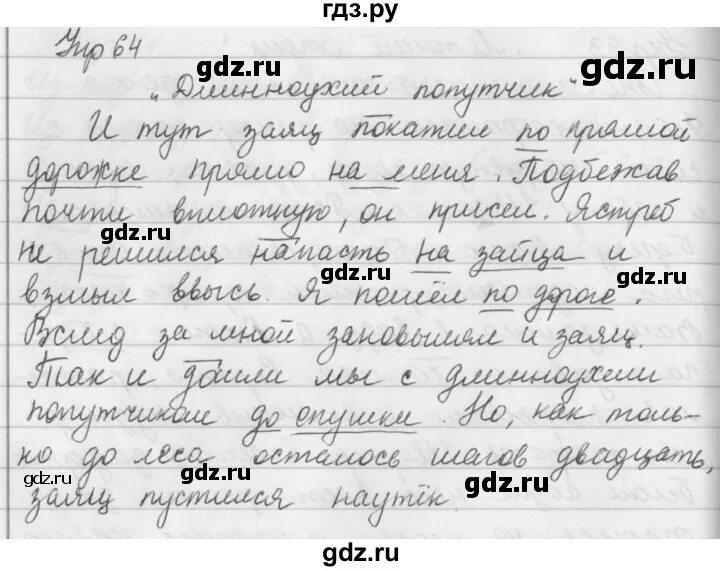 гдз.ру
Упр 64
gdz.ru gdz.ru
„Длинноухий попутчик"
И тут заяц покатил по прямой
дорожке прямо на меня. Подбежав
почти вплотную, он присел. Ястреб
gdz.ru
не решился напасть на зайца и
gdz.ru
взмыл ввысь. Я пошёл по дороге.
gdz.ru gdz.ru
Вслед за мной заковылял и заяц.
Так и дошли мы с длинноухим
gdz.ru
попутчиком до опушки. Но, как толь-
ко до леса осталось шагов двадцать,
gdz.ru gdz.ru
заяц пустился наутёк.
gdz.ru